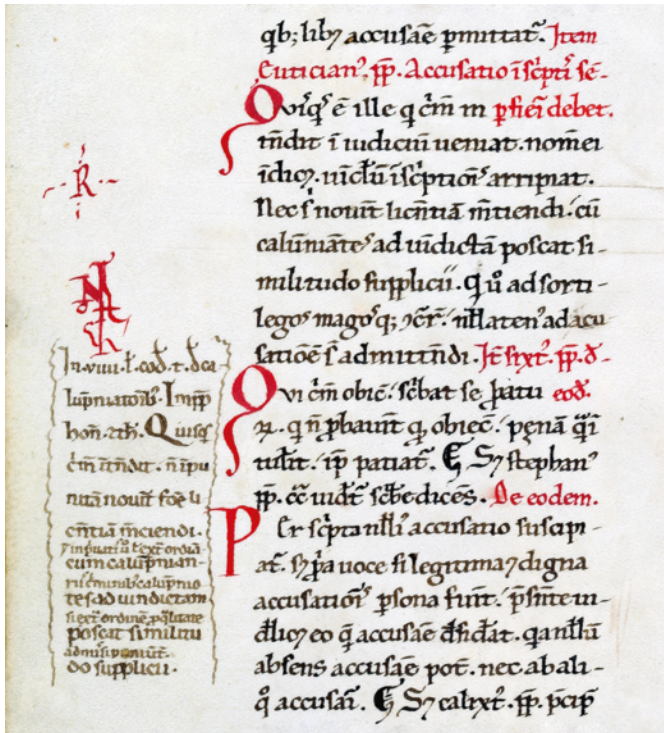 qb; lib⁊ accusaē ꝑmittat᷑. Item
Eutician᾽. p̄p. Accusatio ī sc̄pti᾽ sē-
Qvi᾽q᾽ ē ille q c̄m in ꝑfieī debet.
tn̄dit ī iudiciū ueniat. nom̄ ei
īdic⁊. uīcl̄m īsc̄ption᾽ arripiat.
Nec s̄ nouīt licn̄tiā m̄tiendi. cū
calūniāte᾽ ad uīdictā poscat si-
militudo supplicii. Qđ ad sorti-
lego᾽ mago᾽q; ⁊c̄r. nll̄aten᾽ ad acu
satiōē s̄ admittn̄di. It̄ sixt᾽. p̄p. đ-
Qvi c̄m obic̄. sc̄bat se p̄batu eođ.
ꝝ. q n̄ p̄bauīt q obiec̄. penā q̄ī
tulīt. ip̄ patiat᷑. ¶ S⁊ stephan᾽
p̄p. cc̄ uid̄t᷑ sc̄be dicēs. De eodem.
Per sc̄pta nll̄i᾽ accusatio suscipi-
at᷑. s⁊ p̄p̄a uoce si legitima ⁊ digna
accusation᾽ ꝑsona fuīt. p̄sn̄te ui-
dl̄ic⁊ eo q̄ accusaē đsid̄at. q̄a nll̄ū
absens accusaē pot̄. nec ab ali-
q̊ accusaī. ¶ S⁊ calixt᾽. p̄p. p̄cip̄
R
In. viiii. l̄. cođ. t̄. đ ca
lūpniatorib᾽. Imp̄p
hon̄. ⁊ th̄. Quisq᾽
c̄m īn̄dit. n̄ īpu
nitā nouīt foē li
cn̄tiā m̄ciendi.
cum calūpnian-
tes ad uindictam
poscat similitu
do supplicii.